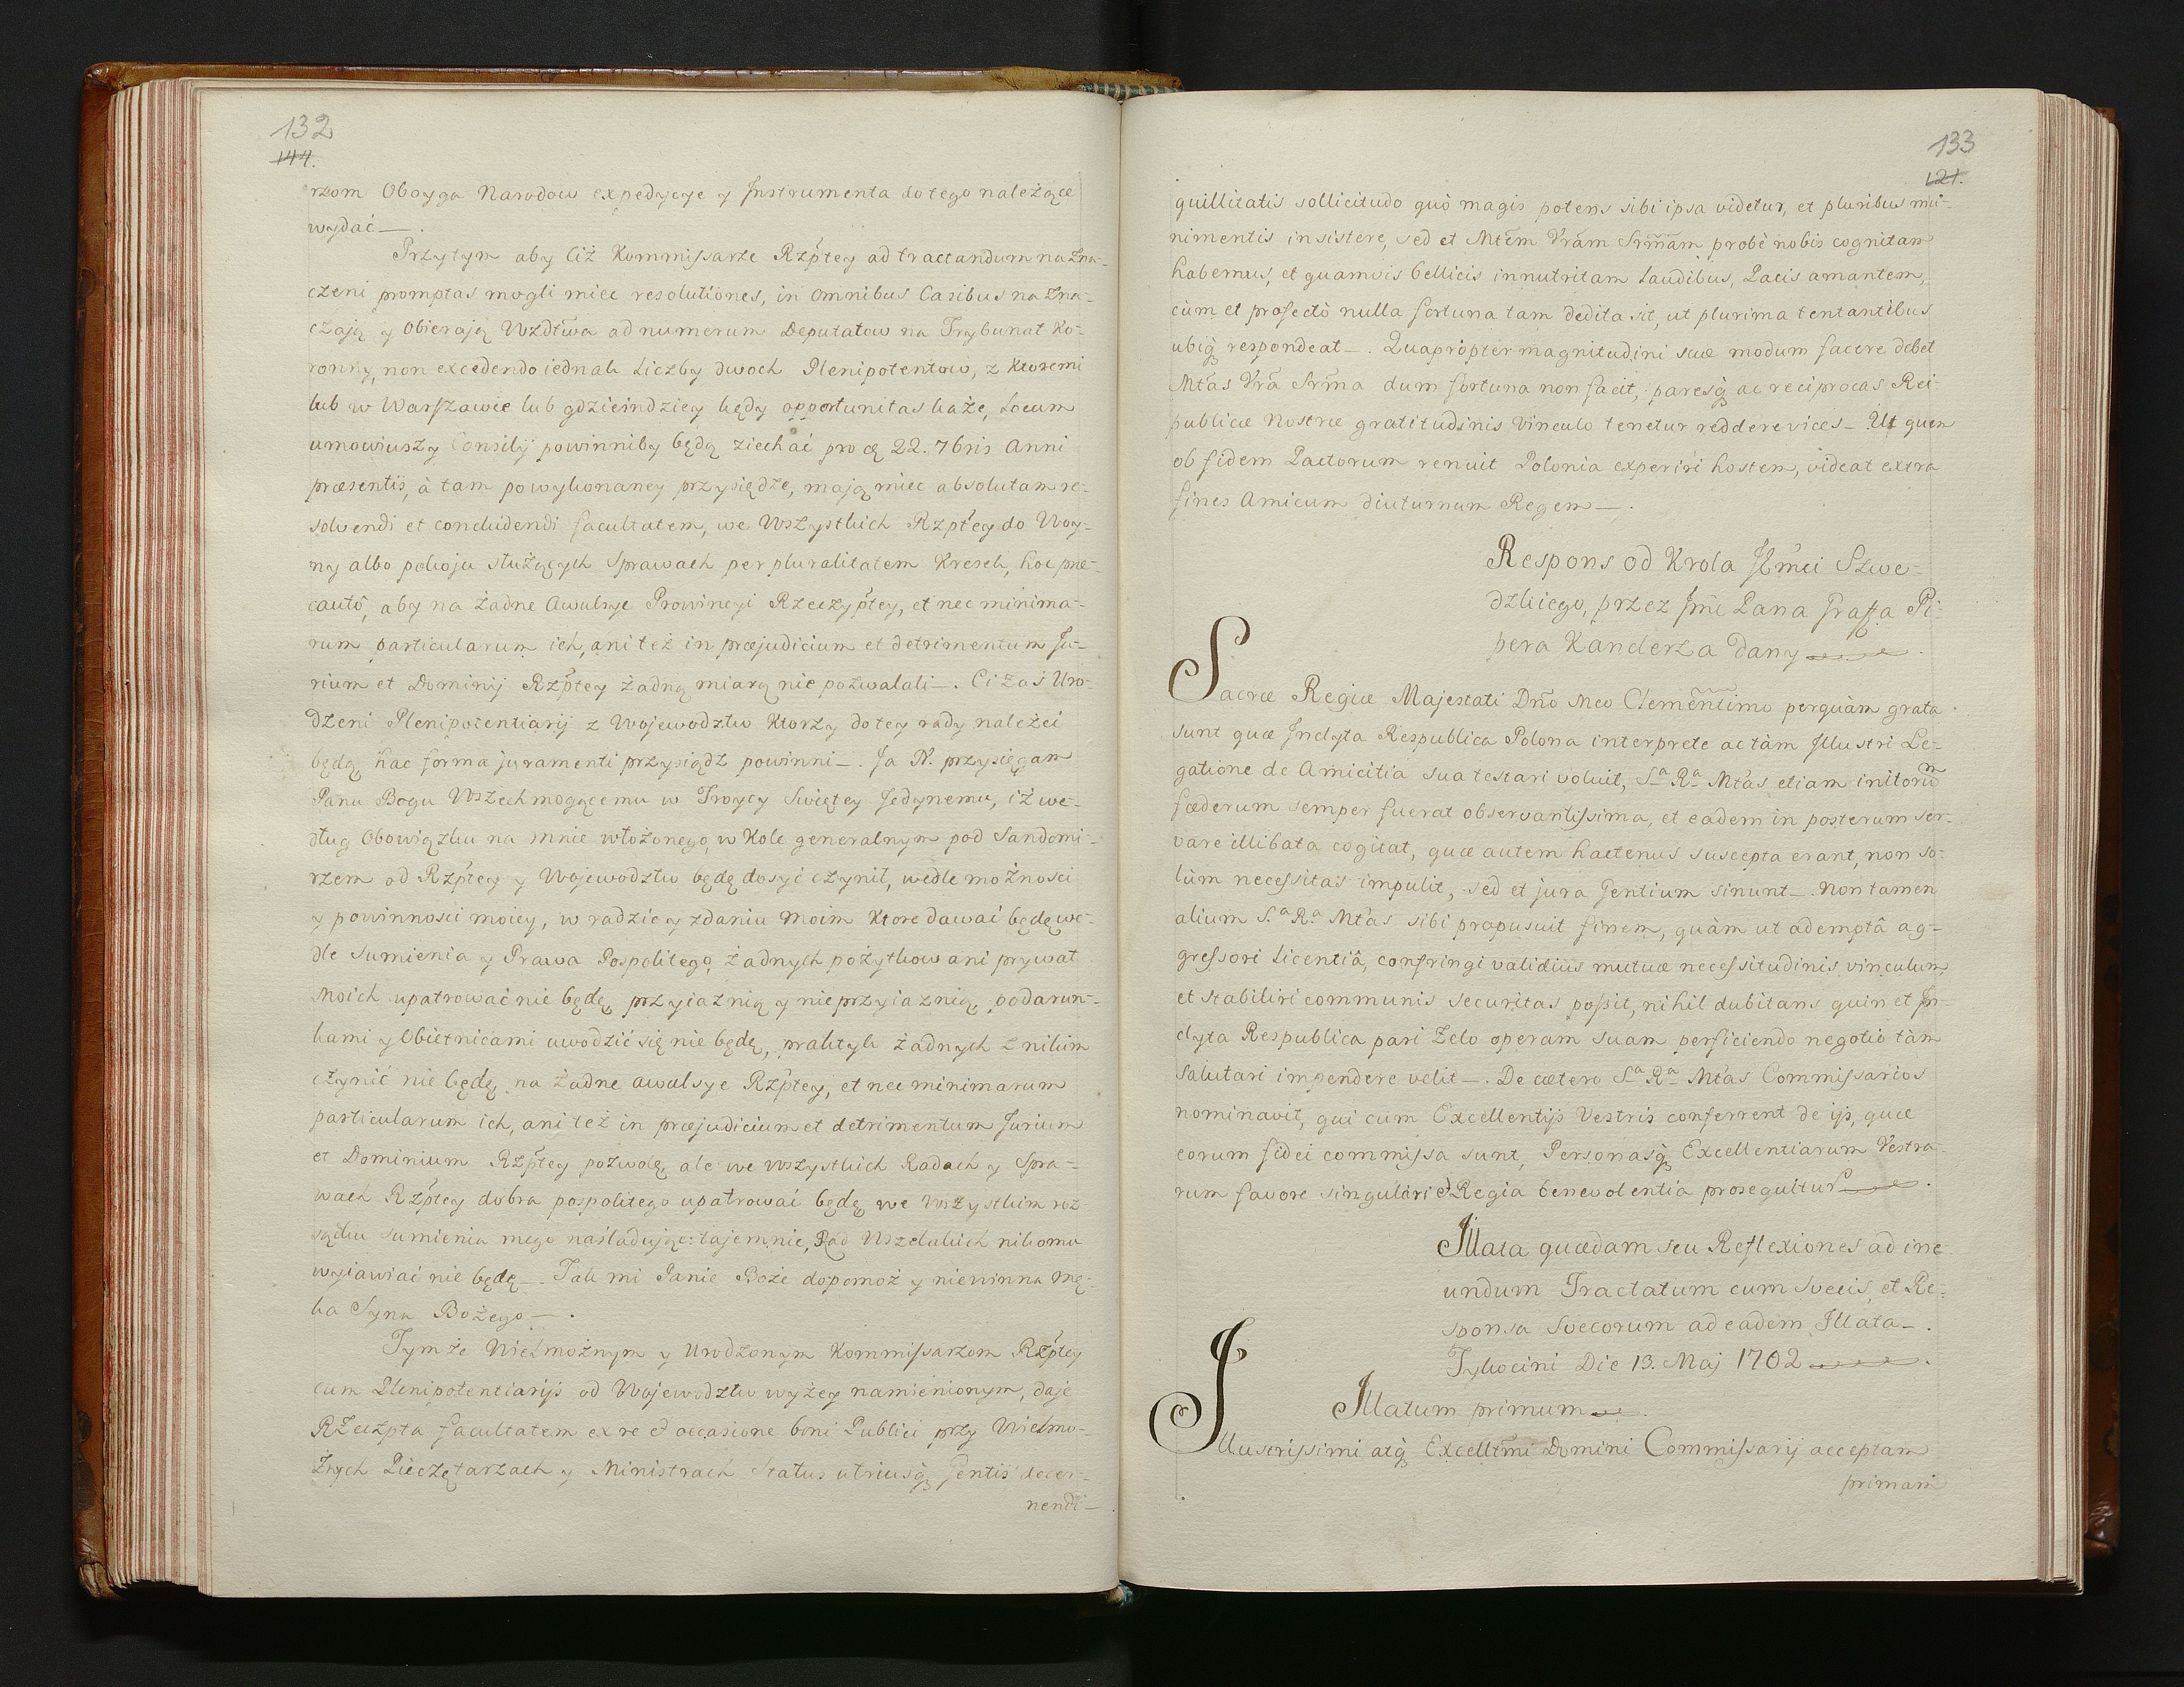 132
144.
rzom Oboyga Narodow expedycye y Instrumenta do tego należące
wydać—.
Przytym aby Ciż Kommissarze Rzptey ad tractandum nazna-
czeni promptas mogli miec resolutiones, in omnibus Casibus nazna-
czają y Obierają Wzdtwa ad numerum Deputatow na Trybunał Ko-
ronny, non excedendo iednak Liczby dwoch Plenipotentow, z Ktoremi
lub w Warszawie lub gdzieindziey kędy opportunitas każe, Locum
umowiwszy Consilij powinni by będą ziechać pro 22. 7bris Anni
præsentis, à tam po wykonaney przysiędze, mają miec absolutam re-
solvendi et concludendi facultatem, we Wszystkich Rzptey do Woy-
ny albo pokoju służących Sprawach per pluralitatem Kresek, hoc præ-
cautô, aby na żadne Awulsye Prowincyi Rzeczyptey, et nec minima-
rum particularum ich, ani też in præjudicium et detrimentum Ju-
rium et Dominij Rzptey żadną miarą nie pozwalali—. Ci zaś Uro-
dzeni Plenipotentiarij z Wojewodztw Ktorzy do tey rady należeć
będą hac forma juramenti przysiądz powinni—. Ja N. przysięgam
Panu Bogu Wszechmogącemu w Troycy Swiętey Jedynemu, iż we-
dług Obowiązku na mnie włożonego, w Kole generalnym pod Sandomi-
rzem od Rzptey y Wojewodztw będę dosyć czynił, wedle możnosci
y powinnosci moiey, w radzie y zdaniu moim Ktore dawać będę we-
dle Sumienia y Prawa Pospolitego, żadnych pożytkow ani prywat
Moich upatrować nie będę, przyiaznią y nieprzyiaznią, podarun-
kami y Obietnicami uwodzić się nie będę, praktyk żadnych z nikim
czynić nie będę, na żadne awulsye Rzptey, et nec minimarum
particularum ich, ani też in præjudicium et detrimentum Jurium
et Dominium Rzptey pozwolę, ale we wszystkich Radach y Spra-
wach Rzptey dobra pospolitego upatrować będę we wszystkim roz
sądku sumienia mego nasladując: tajemnie, Rad Wszelakich nikomu
wyiawiać nie będę—. Tak mi Panie Boże dopomoż y niewinna mę-
ka Syna Bożego—.
Tymże Wielmożnym y Urodzonym Kommissarzom Rzptey
cum Plenipotentiarijs od Wojewodztw wyżey namienionym, daje
Rzeczpta facultatem ex re & occasione boni Publici przy Wielmo-
żnych Pieczętarzach y Ministrach Status utriusq gentis decer-
nendi—
133
121.
quillitatis sollicitudo quò magis potens sibi ipsa videtur, et pluribus mu-
nimentis insistere, sed et Mtem Vram Srmam probè nobis cognitam
habemus, et quamvis bellicis innutritam Laudibus, Pacis amantem,
cùm et profectò nulla fortuna tam dedita sit, ut plurima tentantibus
ubiq respondeat—. Quapropter magnitudini suæ modum facere debet
Mtas Vra Srma dum fortuna non facit, paresq ac reciprocas Rei-
publicæ Nostræ gratitudinis vinculo tenetur reddere vices—. Ut quem
ob fidem Pactorum renuit Polonia experiri hostem, videat extra
fines Amicum diuturnum Regem—.
Respons od Krola JKmci Szwe-
dzkiego, przez Jmc Pana Graffa Pi-
pera Kanclerza dany
Sacræ Regiæ Majestati Dno Meo Clementimo perquàm grata
sunt quæ Inclyta Respublica Polona interprete ac tàm Illustri Le-
gatione de Amicitia sua testari voluit, Sa Ra Mtas etiam initorum
fœderum semper fuerat observantissima, et eadem in posterum ser-
vare illibata cogitat, quæ autem hactenus suscepta erant, non so-
lùm necessitas impulit, sed et jura Gentium sinunt—. Non tamen
alium S.a R.a Mtas sibi proposuit finem, quàm ut ademptâ ag-
gressori licentiâ, confringi validius mutuæ necessitudinis vinculum,
et stabiliri communis securitas possit, nihil dubitans quin et In-
clyta Respublica pari Zelo operam suam perficiendo negotio tàm
salutari impendere velit—. De cætero Sa Ra Mtas Commissarios
nominavit, qui cum Excellentijs Vestris conferrent de ijs, quæ
eorum fidei commissa sunt, Personasq Excellentiarum Vestra-
rum favore singulari & Regia benevolentia prosequitur.
Illata quædam seu Reflexiones ad ine-
undum Tractatum cum Svecis, et Re-
sponsa Svecorum ad eadem Illata—.
Tykocini Die 13. Maj 1702
Illatum primum
Illustrissimi atq Excelltmi Domini Commissarij acceptam
primam